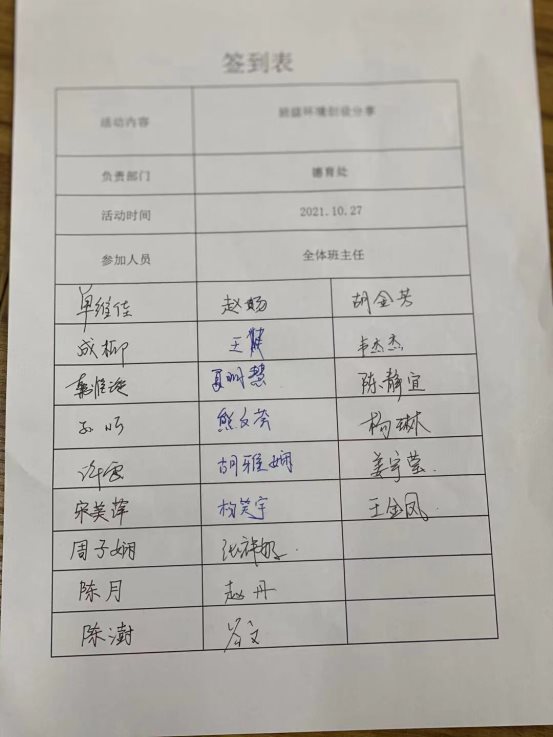 签到表
活动内容 班级环境创设分享
负责部门 德育处
活动时间 2021.10.27
参加人员 全体班主任
单维佳 赵旸 胡金芳
成柳 王健 韦杰杰
夏明慧 陈静宜
孙巧 熊文芳 杨琳
许雷 胡雅娴 姜宇莹
宋美萍 杨笑宇 王金凤
周子娴 张祥敏
陈月 赵丹
陈澍 谷文